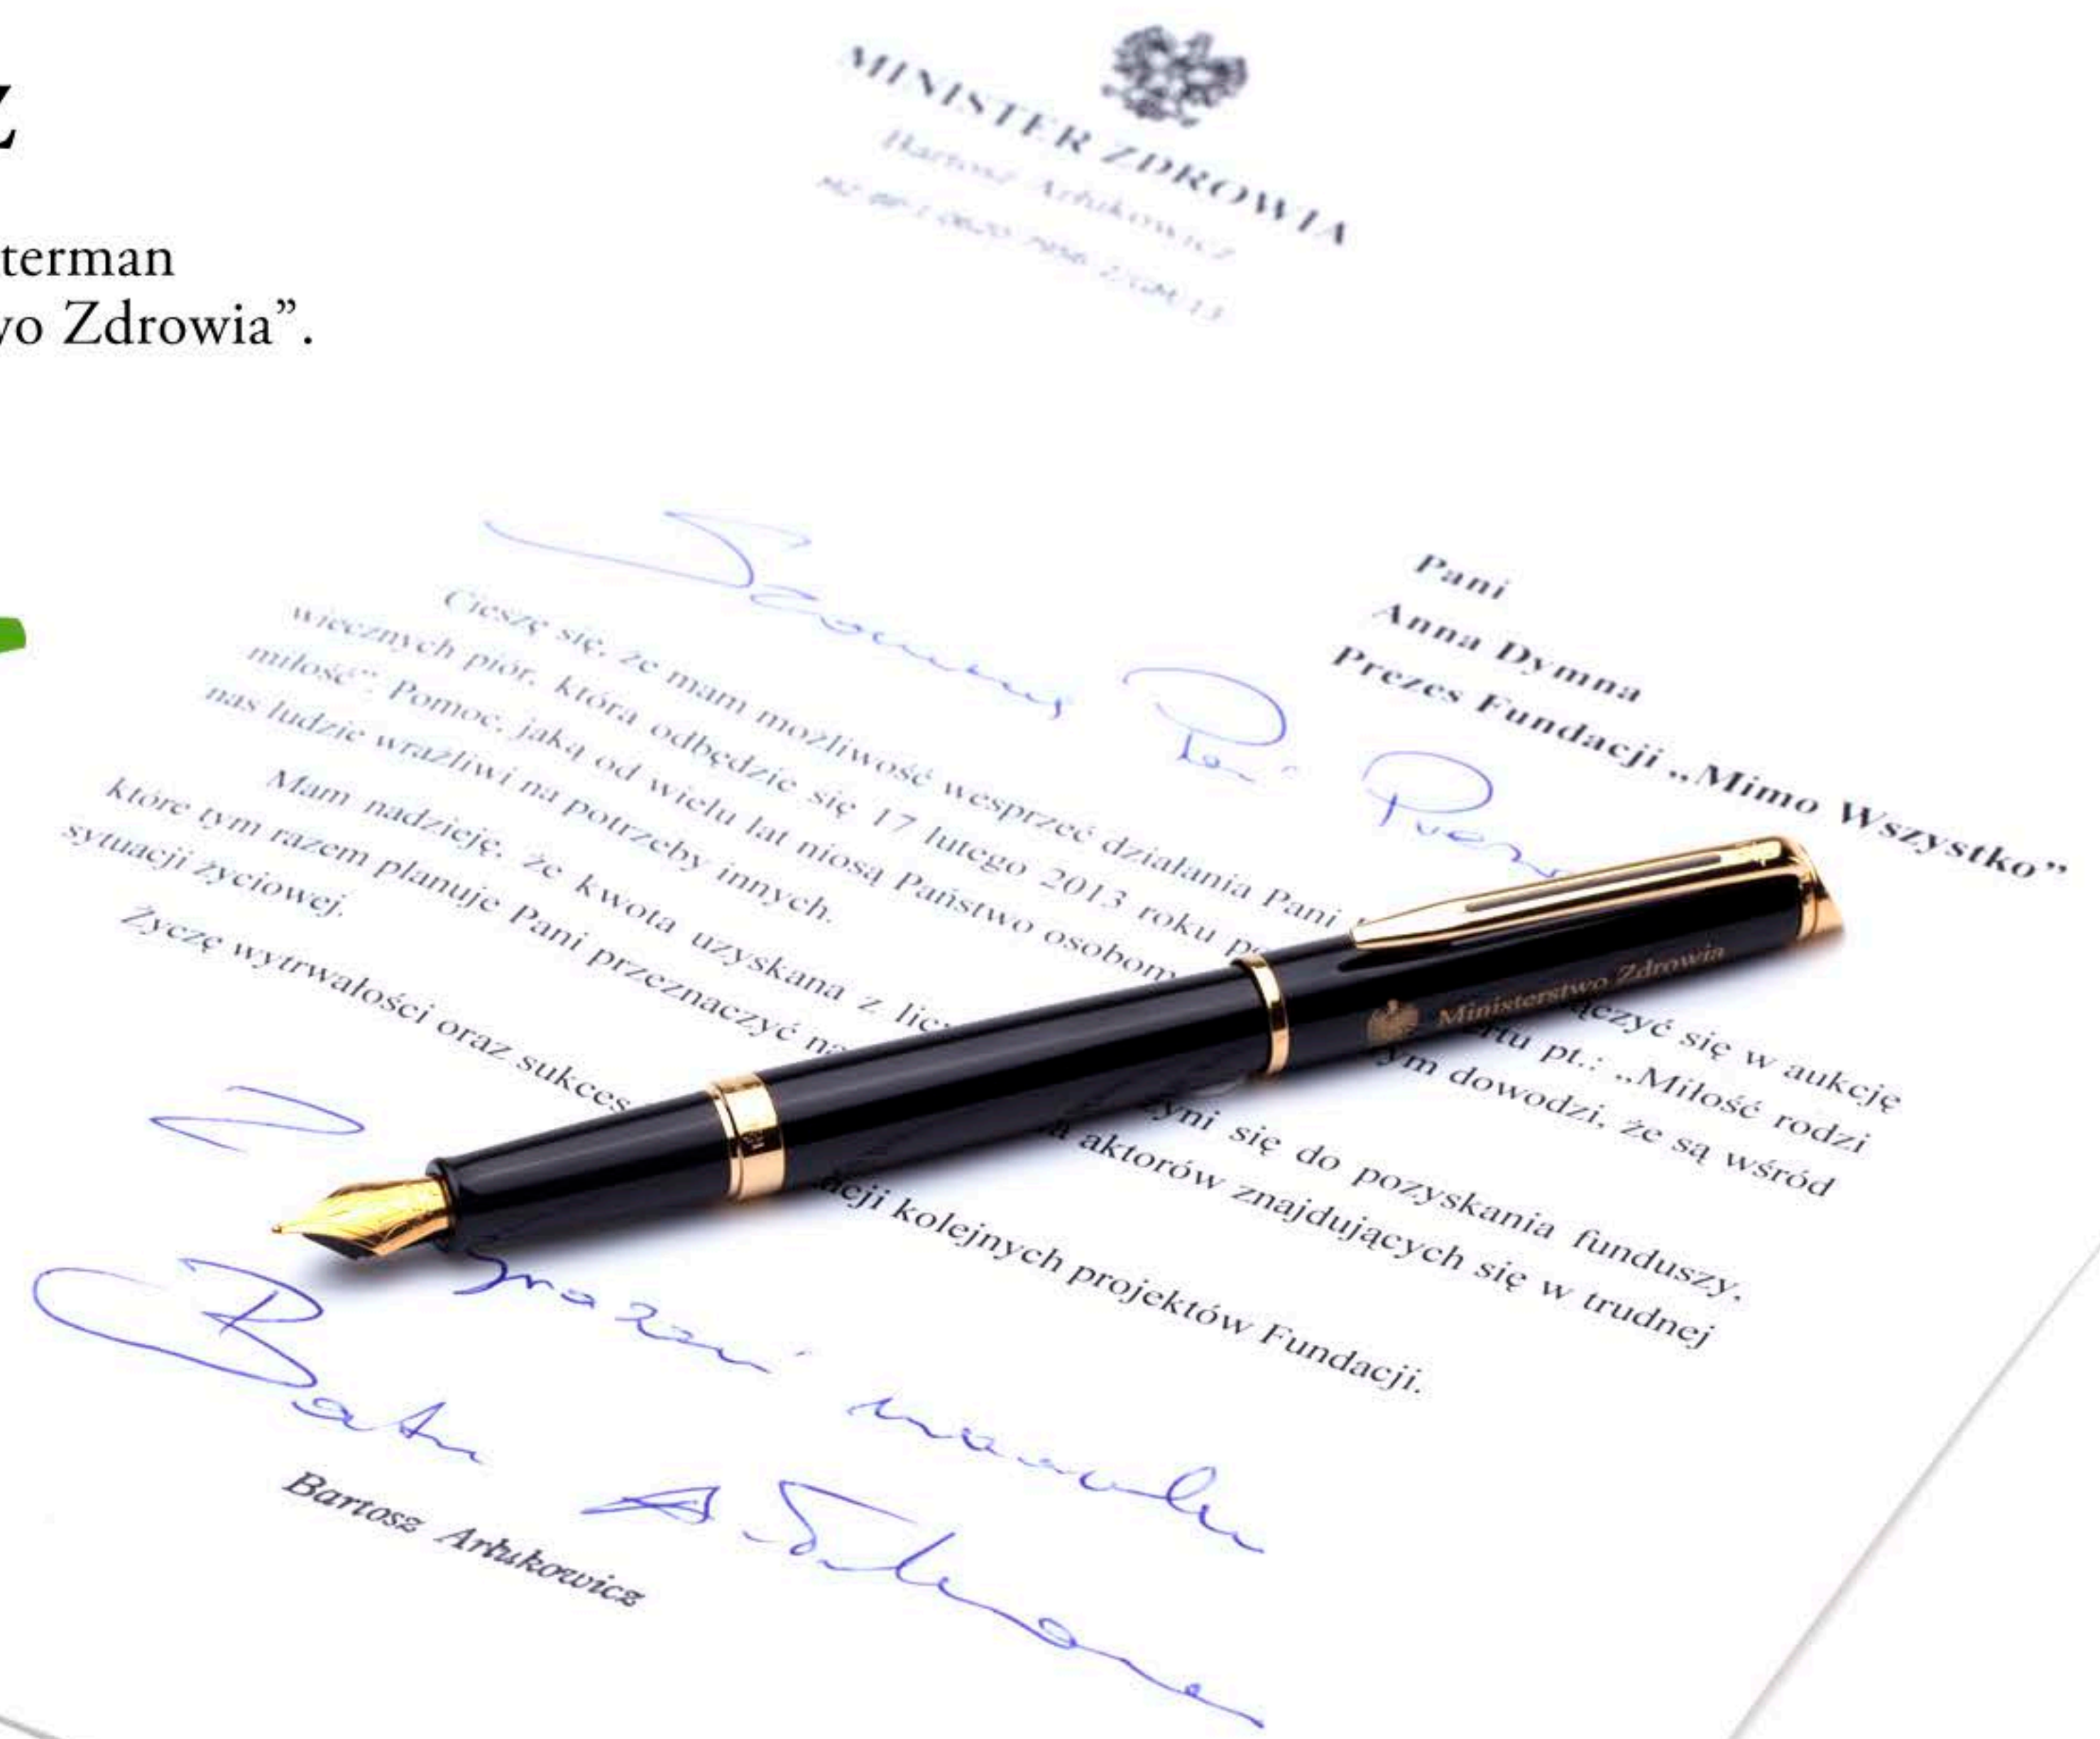 Z
terman
wo Zdrowia”.
MINISTER ZDROWIA
Bartosz Arłukowicz
Pani
Anna Dymna
Prezes Fundacji „Mimo Wszystko”
Pani
Cieszę się, że mam możliwość wesprzeć działania Pani łączyć się w aukcję
wiecznych piór, która odbędzie się 17 lutego 2013 roku pt.: „Miłość rodzi
miłość”. Pomoc, jaką od wielu lat niosą Państwo osobom dowodzi, że są wśród
nas ludzie wrażliwi na potrzeby innych.
Mam nadzieję, że kwota uzyskana z się do pozyskania funduszy,
które tym razem planuje Pani przeznaczyć aktorów znajdujących się w trudnej
sytuacji życiowej.
Życzę wytrwałości oraz kolejnych projektów Fundacji.
Ministerstwo Zdrowia
Z
Bartosz Arłukowicz